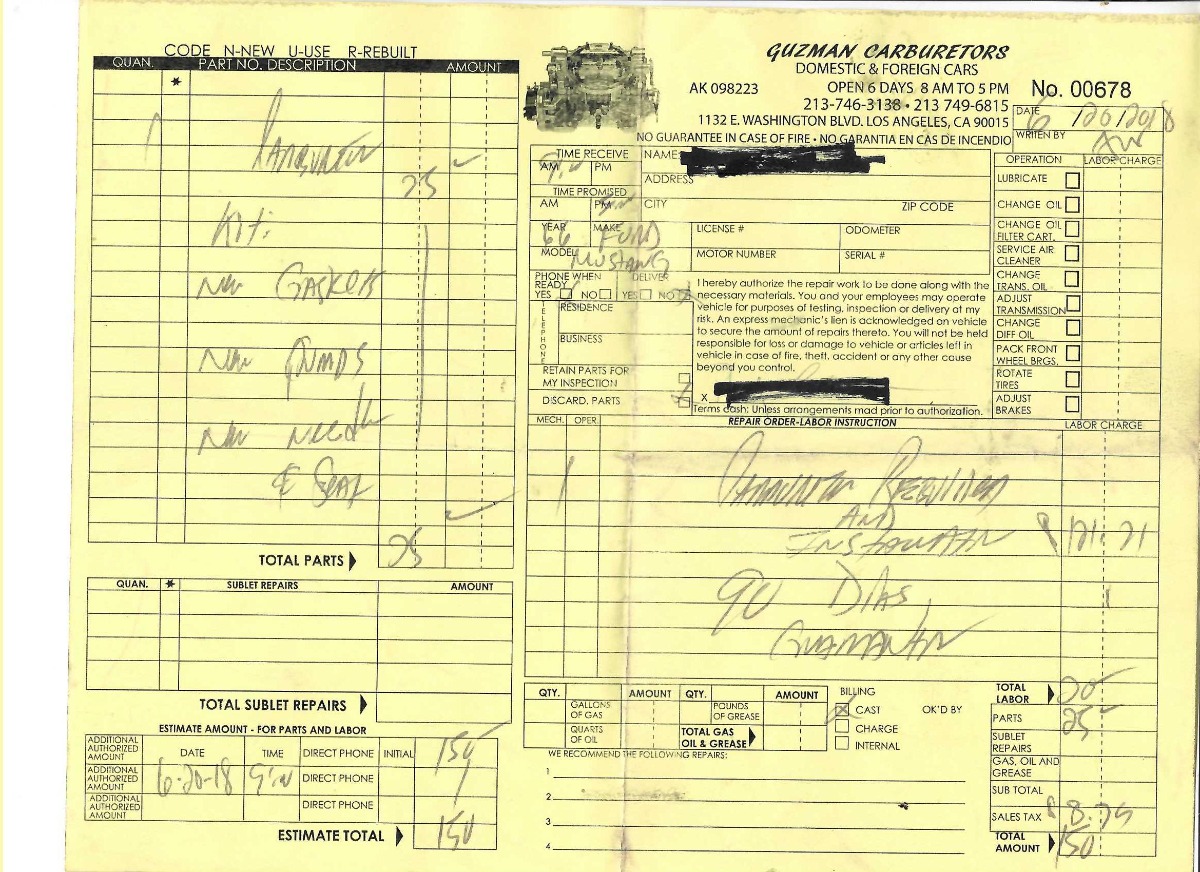 CODE N-NEW U-USE R-REBUILT
QUAN. * PART NO. DESCRIPTION AMOUNT
25
Kit:
New Gaskets
New Pumps
New Needle
& Seat
TOTAL PARTS 25
QUAN. * SUBLET REPAIRS AMOUNT
TOTAL SUBLET REPAIRS
ESTIMATE AMOUNT - FOR PARTS AND LABOR
ADDITIONAL AUTHORIZED AMOUNT DATE TIME DIRECT PHONE INITIAL
ADDITIONAL AUTHORIZED AMOUNT 6-20-18 DIRECT PHONE
ADDITIONAL AUTHORIZED AMOUNT DIRECT PHONE
ESTIMATE TOTAL 150
GUZMAN CARBURETORS
DOMESTIC & FOREIGN CARS
AK 098223 OPEN 6 DAYS 8 AM TO 5 PM
No. 00678
213-746-3138 • 213 749-6815
1132 E. WASHINGTON BLVD. LOS ANGELES, CA 90015
NO GUARANTEE IN CASE OF FIRE • NO GARANTIA EN CAS DE INCENDIO
DATE 6/20/2018
WRITEN BY
TIME RECEIVE
AM PM
TIME PROMISED
AM PM
NAME
ADDRESS
CITY ZIP CODE
YEAR 66 MAKE FORD
LICENSE # ODOMETER
MODEL MUSTANG
MOTOR NUMBER SERIAL #
PHONE WHEN READY YES NO
DELIVER YES NO
TELEPHONE
RESIDENCE
BUSINESS
RETAIN PARTS FOR MY INSPECTION
DISCARD. PARTS
I hereby authorize the repair work to be done along with the
necessary materials. You and your employees may operate
vehicle for purposes of testing, inspection or delivery at my
risk. An express mechanic's lien is acknowledged on vehicle
to secure the amount of repairs thereto. You will not be held
responsible for loss or damage to vehicle or articles left in
vehicle in case of fire, theft, accident or any other cause
beyond you control.
X
Terms cash: Unless arrangements mad prior to authorization.
OPERATION LABOR CHARGE
LUBRICATE
CHANGE OIL
CHANGE OIL FILTER CART.
SERVICE AIR CLEANER
CHANGE TRANS. OIL
ADJUST TRANSMISSION
CHANGE DIFF OIL
PACK FRONT WHEEL BRGS.
ROTATE TIRES
ADJUST BRAKES
MECH. OPER. REPAIR ORDER-LABOR INSTRUCTION LABOR CHARGE
AND
90 Dias
QTY. AMOUNT QTY. AMOUNT
GALLONS OF GAS
POUNDS OF GREASE
QUARTS OF OIL
TOTAL GAS OIL & GREASE
BILLING
CAST OK'D BY
CHARGE
INTERNAL
WE RECOMMEND THE FOLLOWING REPAIRS:
1
2
3
4
TOTAL LABOR
PARTS 25
SUBLET REPAIRS
GAS, OIL AND GREASE
SUB TOTAL
SALES TAX
TOTAL AMOUNT 150